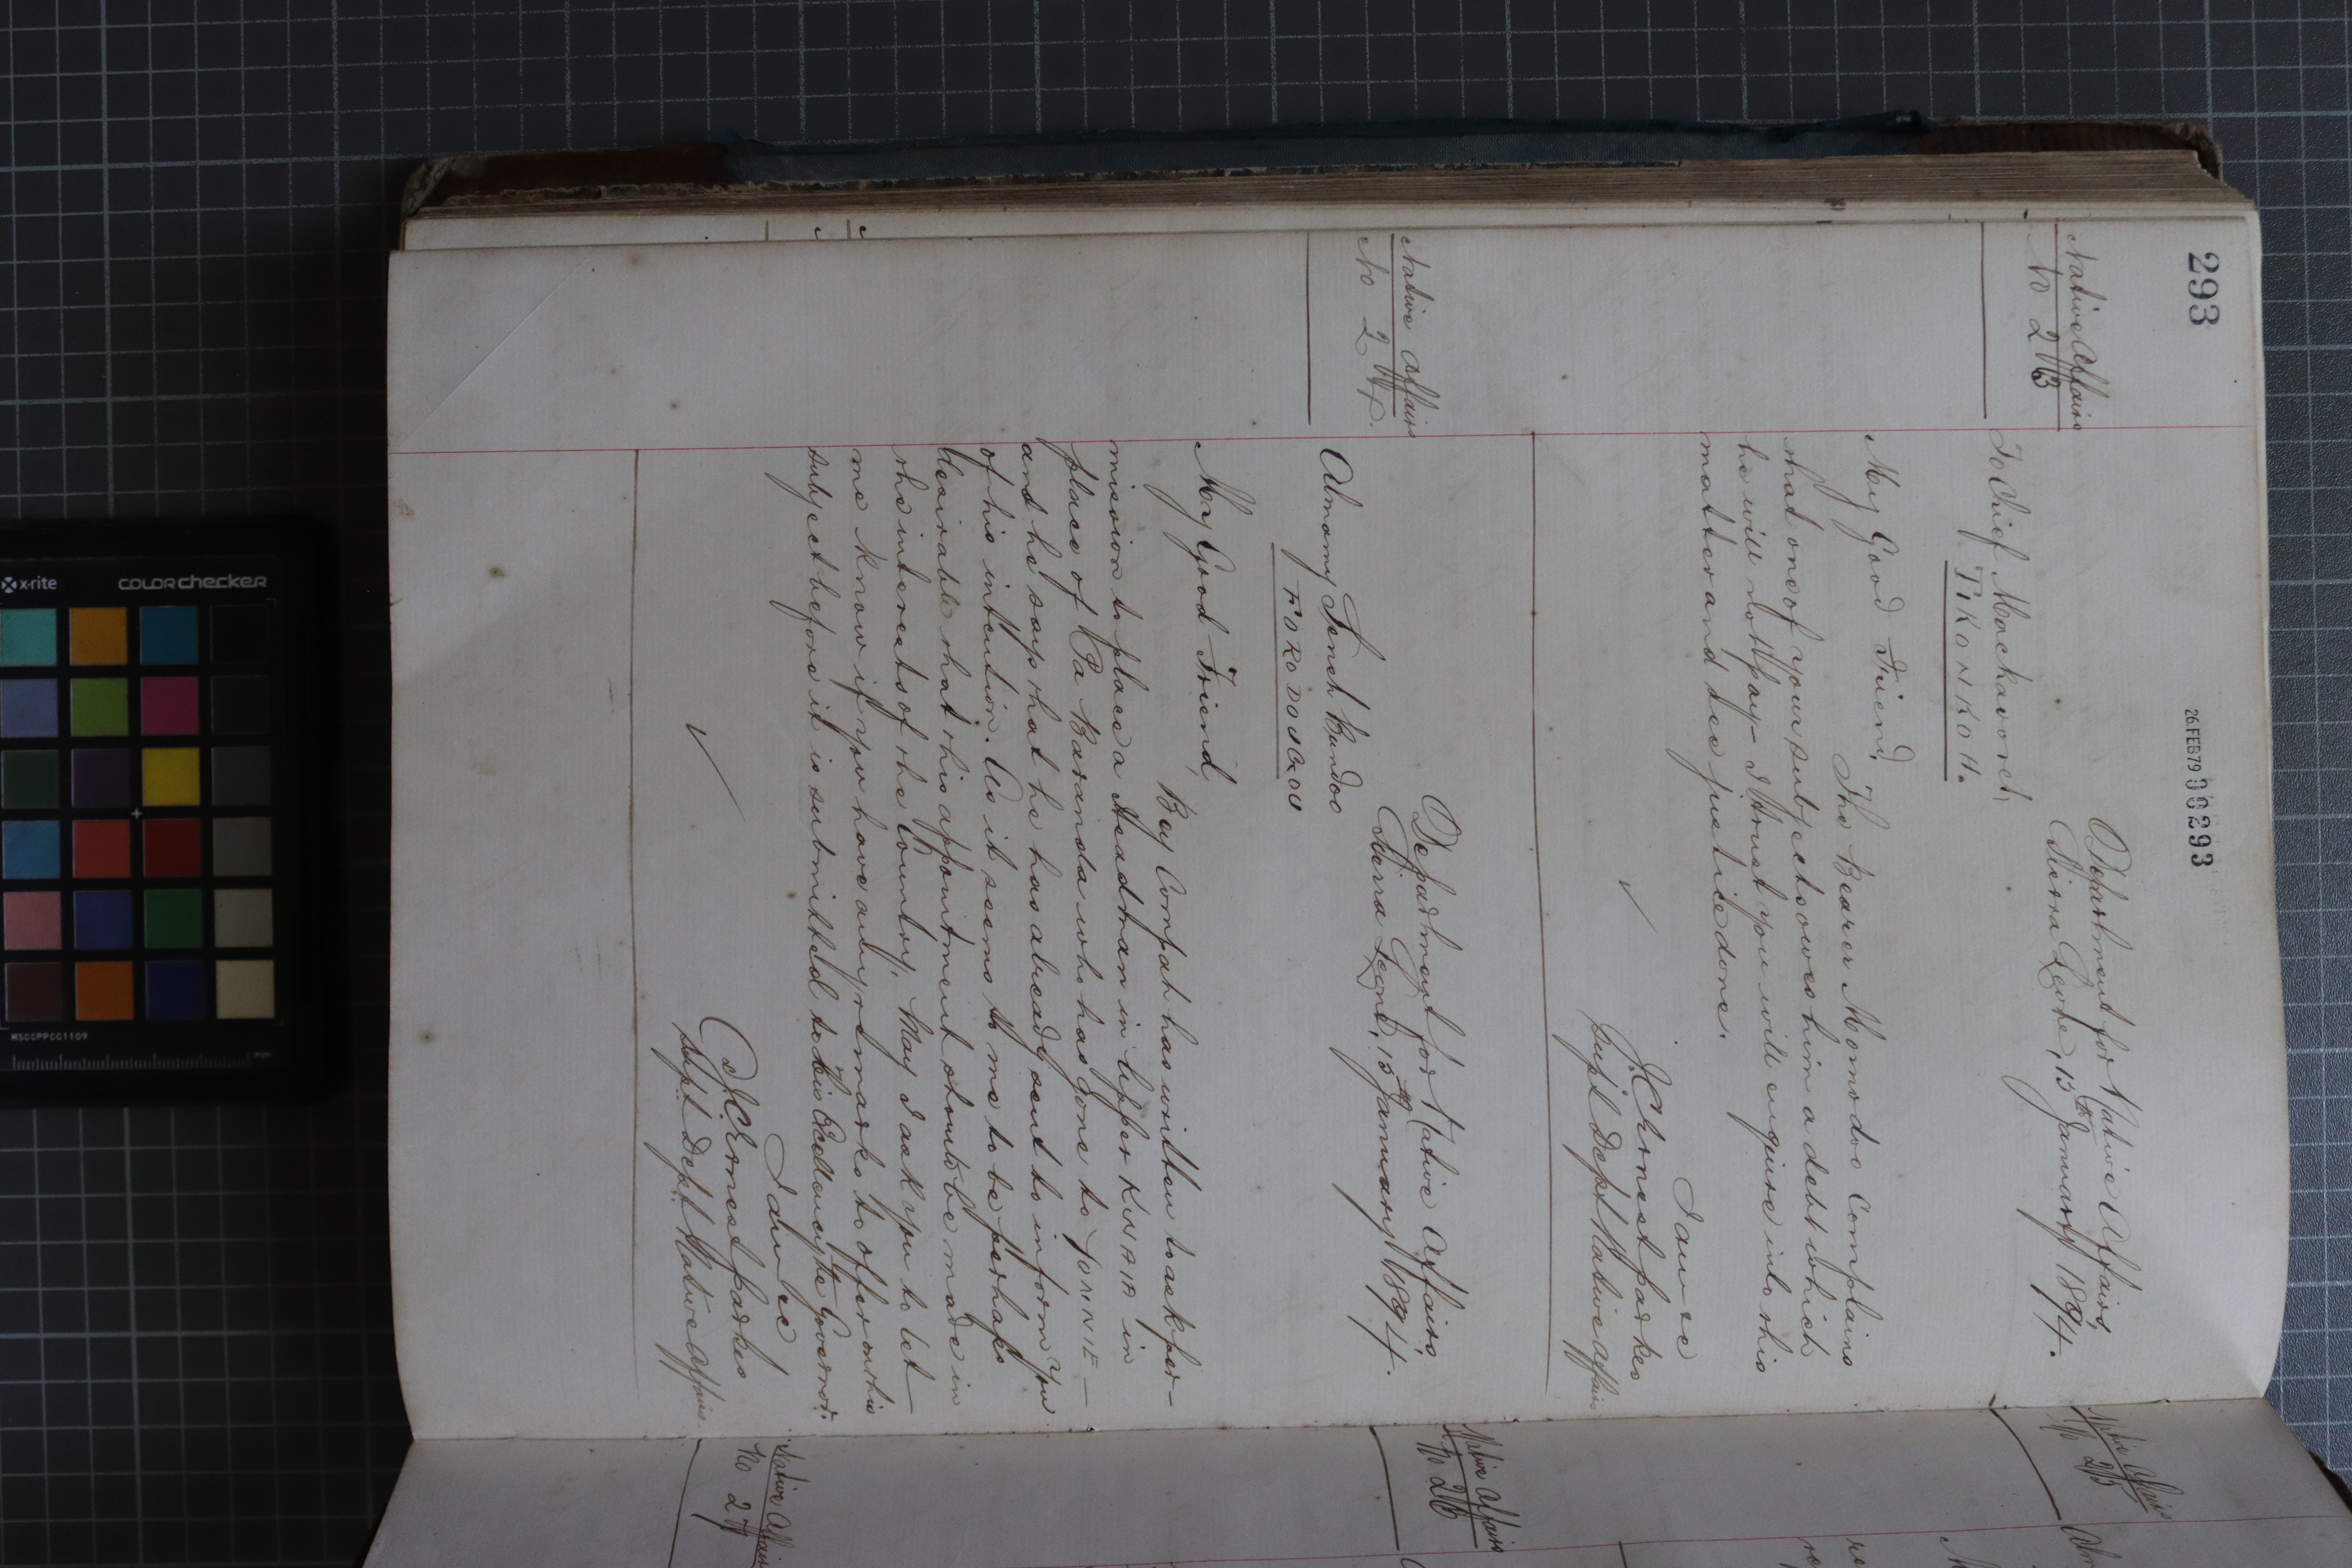 293
26.FEB79 000293
Native Affairs
No 23
Department for Native Affairs,
Sierra Leone, 15th January 1894.
To Chief
TIKONKOH.
My Good Friend,
The Bearer Momodo Complains
that one of your subjects owes him a debt which
he will not pay - I trust you will enquire into this
matter and see justice done.
I am &c
J.C. Ernest Parkes
Supt Dept Native Affairs
Native Affairs
No 24.
Department for Native Affairs,
Sierra Leone, 15th January 1894.
Almamy Seneh Bundoo
FORODUGOU
My Good Friend,
Bey Compah has written to ask per-
mission to place a Headman in Upper KWAIA in
place of Pa Barinda who has gone to YONNIE -
and he says that he has already sent to inform you
of his intention. As it seems to me to be perhaps
desirable that this appointment should be made in
the interests of the Country, May I ask you to let
me know if you have any remarks to offer on this
subject before it is submitted to His Excellency the Governor.
I am &c
J.C. Ernest Parkes
Supt Dept Native Affairs
Native Affairs
No 25
Native Affairs
No 26
Native Affairs
No 27
x-rite COLORchecker
MSCCPPCC1109